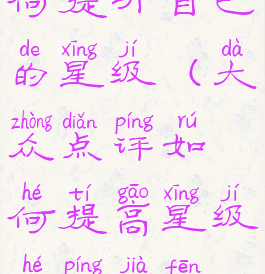 何提升自己
de xīng jí dà
的星级（大
zhòng diǎn píng rú
众点评如
hé tí gāo xīng jí
何提高星级
hé píng jià fēn